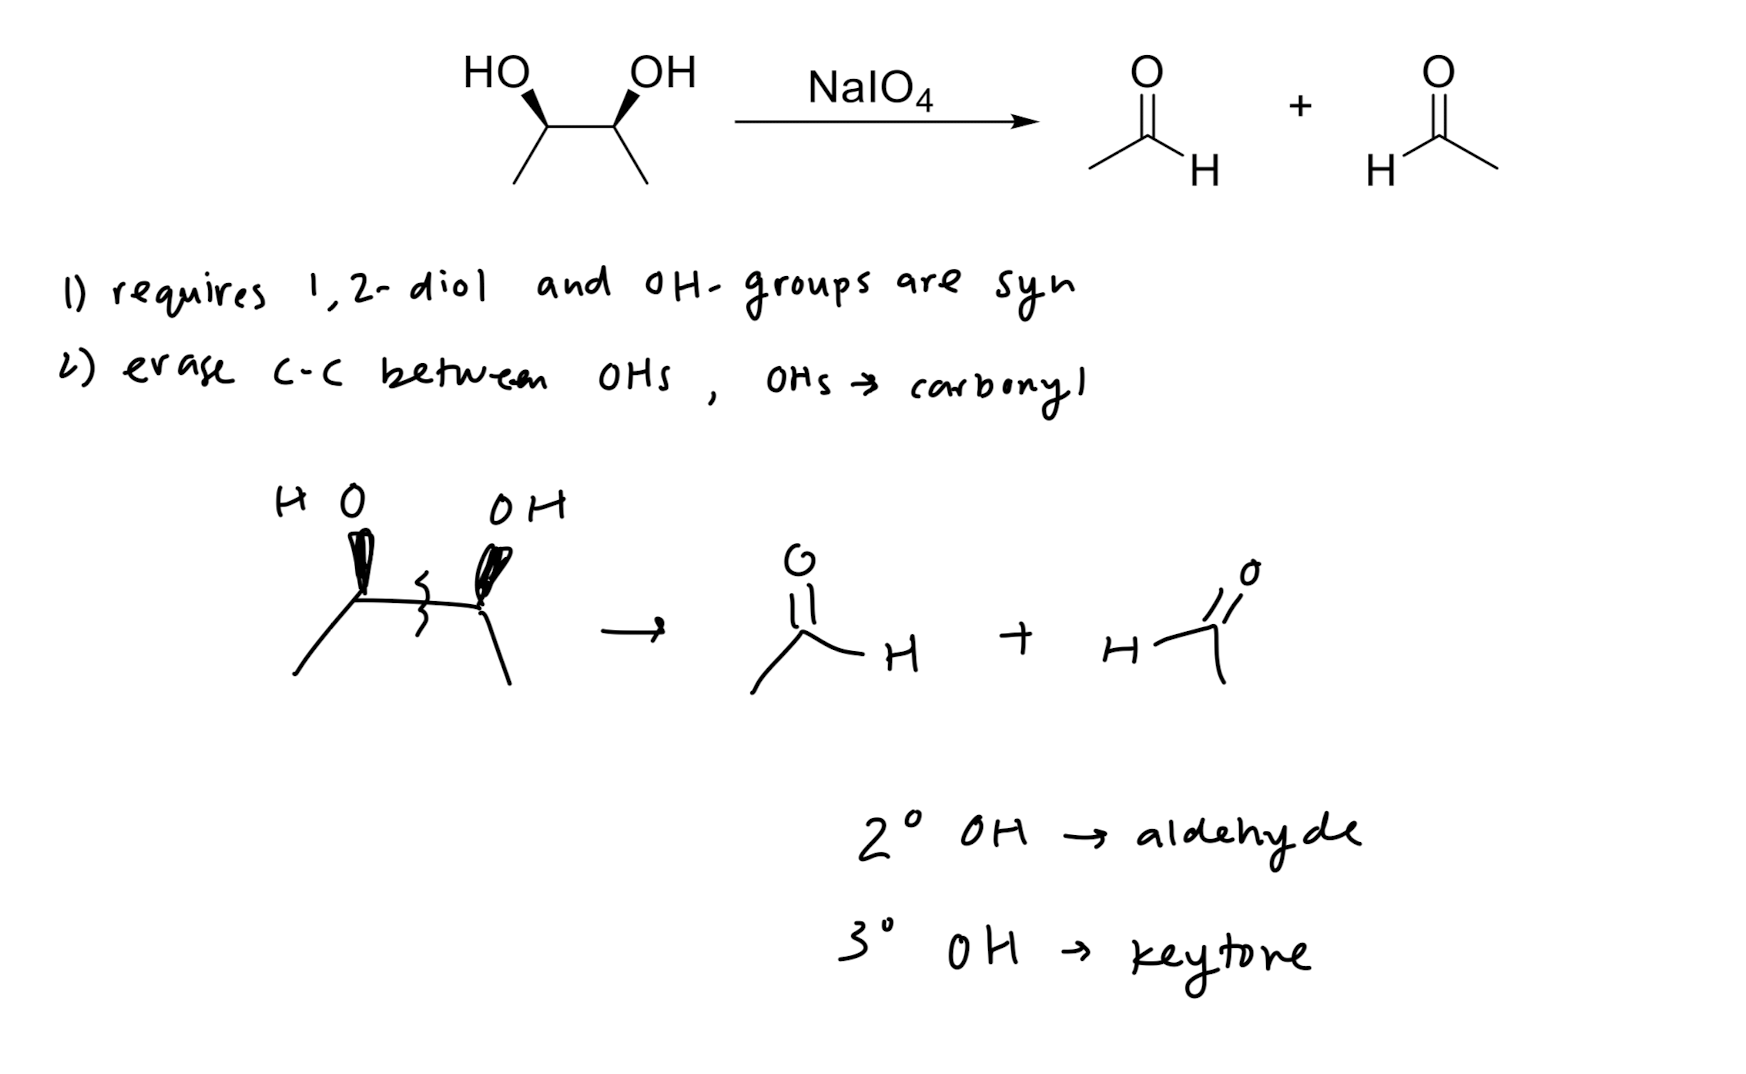 HO OH NaIO4 O + O
H H
1) requires 1,2-diol and OH-groups are syn
2) erase C-C between OHs, OHs → carbonyl
HO OH
O O
→ H + H
2° OH → aldehyde
3° OH → keytone